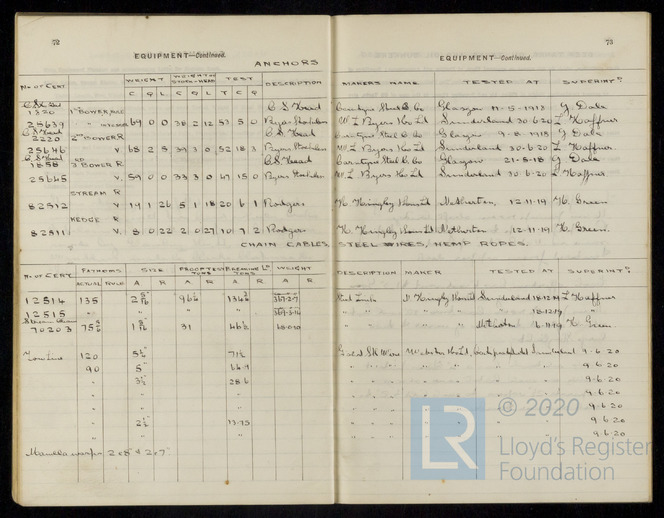 72
EQUIPMENT—Continued.
ANCHORS
No OF CERT
WEIGHT
WEIGHT OF STOCK & HEAD
TEST
DESCRIPTION
C Q L C Q L T C Q
1320 1st BOWER
C S Head
25639 69 0 0 38 2 12 53 5 0 Byers Stockless
C S Head
2220 2nd BOWER R
C S Head
25646 V 68 2 5 39 3 0 52 18 3 Byers Stockless
C S Head
1858 3rd BOWER R
C S Head
25645 V. 59 0 0 33 3 0 47 15 0 Byers Stockless
STREAM R
82512 V 19 1 26 5 1 18 20 6 1 Rodgers
KEDGE R
82511 V. 8 0 22 2 0 27 10 7 2 Rodgers
CHAIN CABLES,
No OF CERT.
FATHOMS
SIZE
PROOF TEST TONS
BREAKING Ld TONS
WEIGHT
ACTUAL RULE A R A R A R A R
12514 135 2 5/16
12515 "
70203 75 31
Tow Line 120 5½" 71½
90 5"
" 3½ 28.6
"
"
" 2½" 13.75
"
Manilla warps 2 of 8" & 2 of 7"
73
EQUIPMENT—Continued.
MAKERS NAME
TESTED AT
SUPERINTD
Carntyne Steel C. Co Glasgow 11-5-1918 J Dale
W. L Byers & Co Ld Sunderland 30.6.20 L Haffner
Carntyne Steel C. Co Glasgow 9-8-1918 J Dale
W. L Byers & Co Ld Sunderland 30.6.20 L Haffner
Carntyne Steel C. Co Glasgow 21-5-18 J Dale
W. L Byers & Co Ld Sunderland 30.6.20 L Haffner
N. Hingley & Sons Ld Netherton. 12-11-19 H. Green
N. Hingley & Sons Ld Netherton 12-11-19 H. Green.
STEEL WIRES, HEMP ROPES.
DESCRIPTION
MAKER
TESTED AT
SUPERINTD
Stud Links N Hingley & Sons Ld Sunderland 18.12.19 L Haffner
" " " 18.12.19 "
" " Netherton H. Green
Galvd Stl Wire Webster & Co Ld, Sunderland 9.6.20
" " " " 9.6.20
" " " " 9.6.20
" " " " 9.6.20
" " " " 9.6.20
" " " " 9.6.20
" " " " 9.6.20
LR
© 2020
Lloyd's Register
Foundation